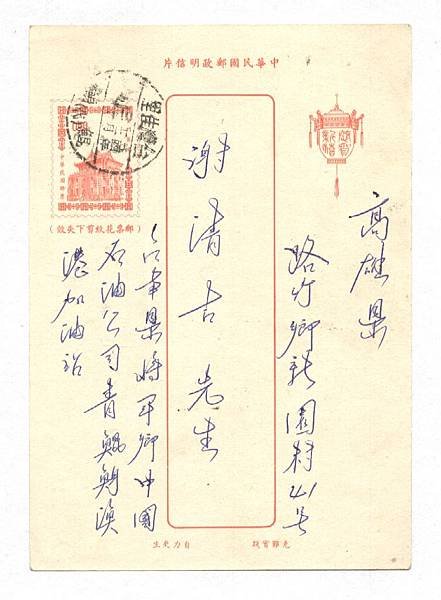 中華民國郵政明信片
高雄県
路竹鄉新園村41号
謝清吉先生
中華民國郵票
(郵票花紋剪下失效)
台南県將軍鄉中國
石油公司青鯤鯓漁
港加油站
克難實踐
自力更生